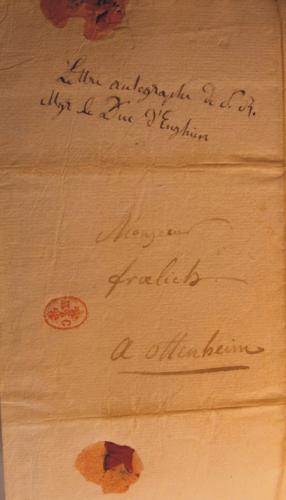 Lettre autographe de S. A.
Mgr le Duc d'Enghien
Monsieur
frœlich
a ottenheim